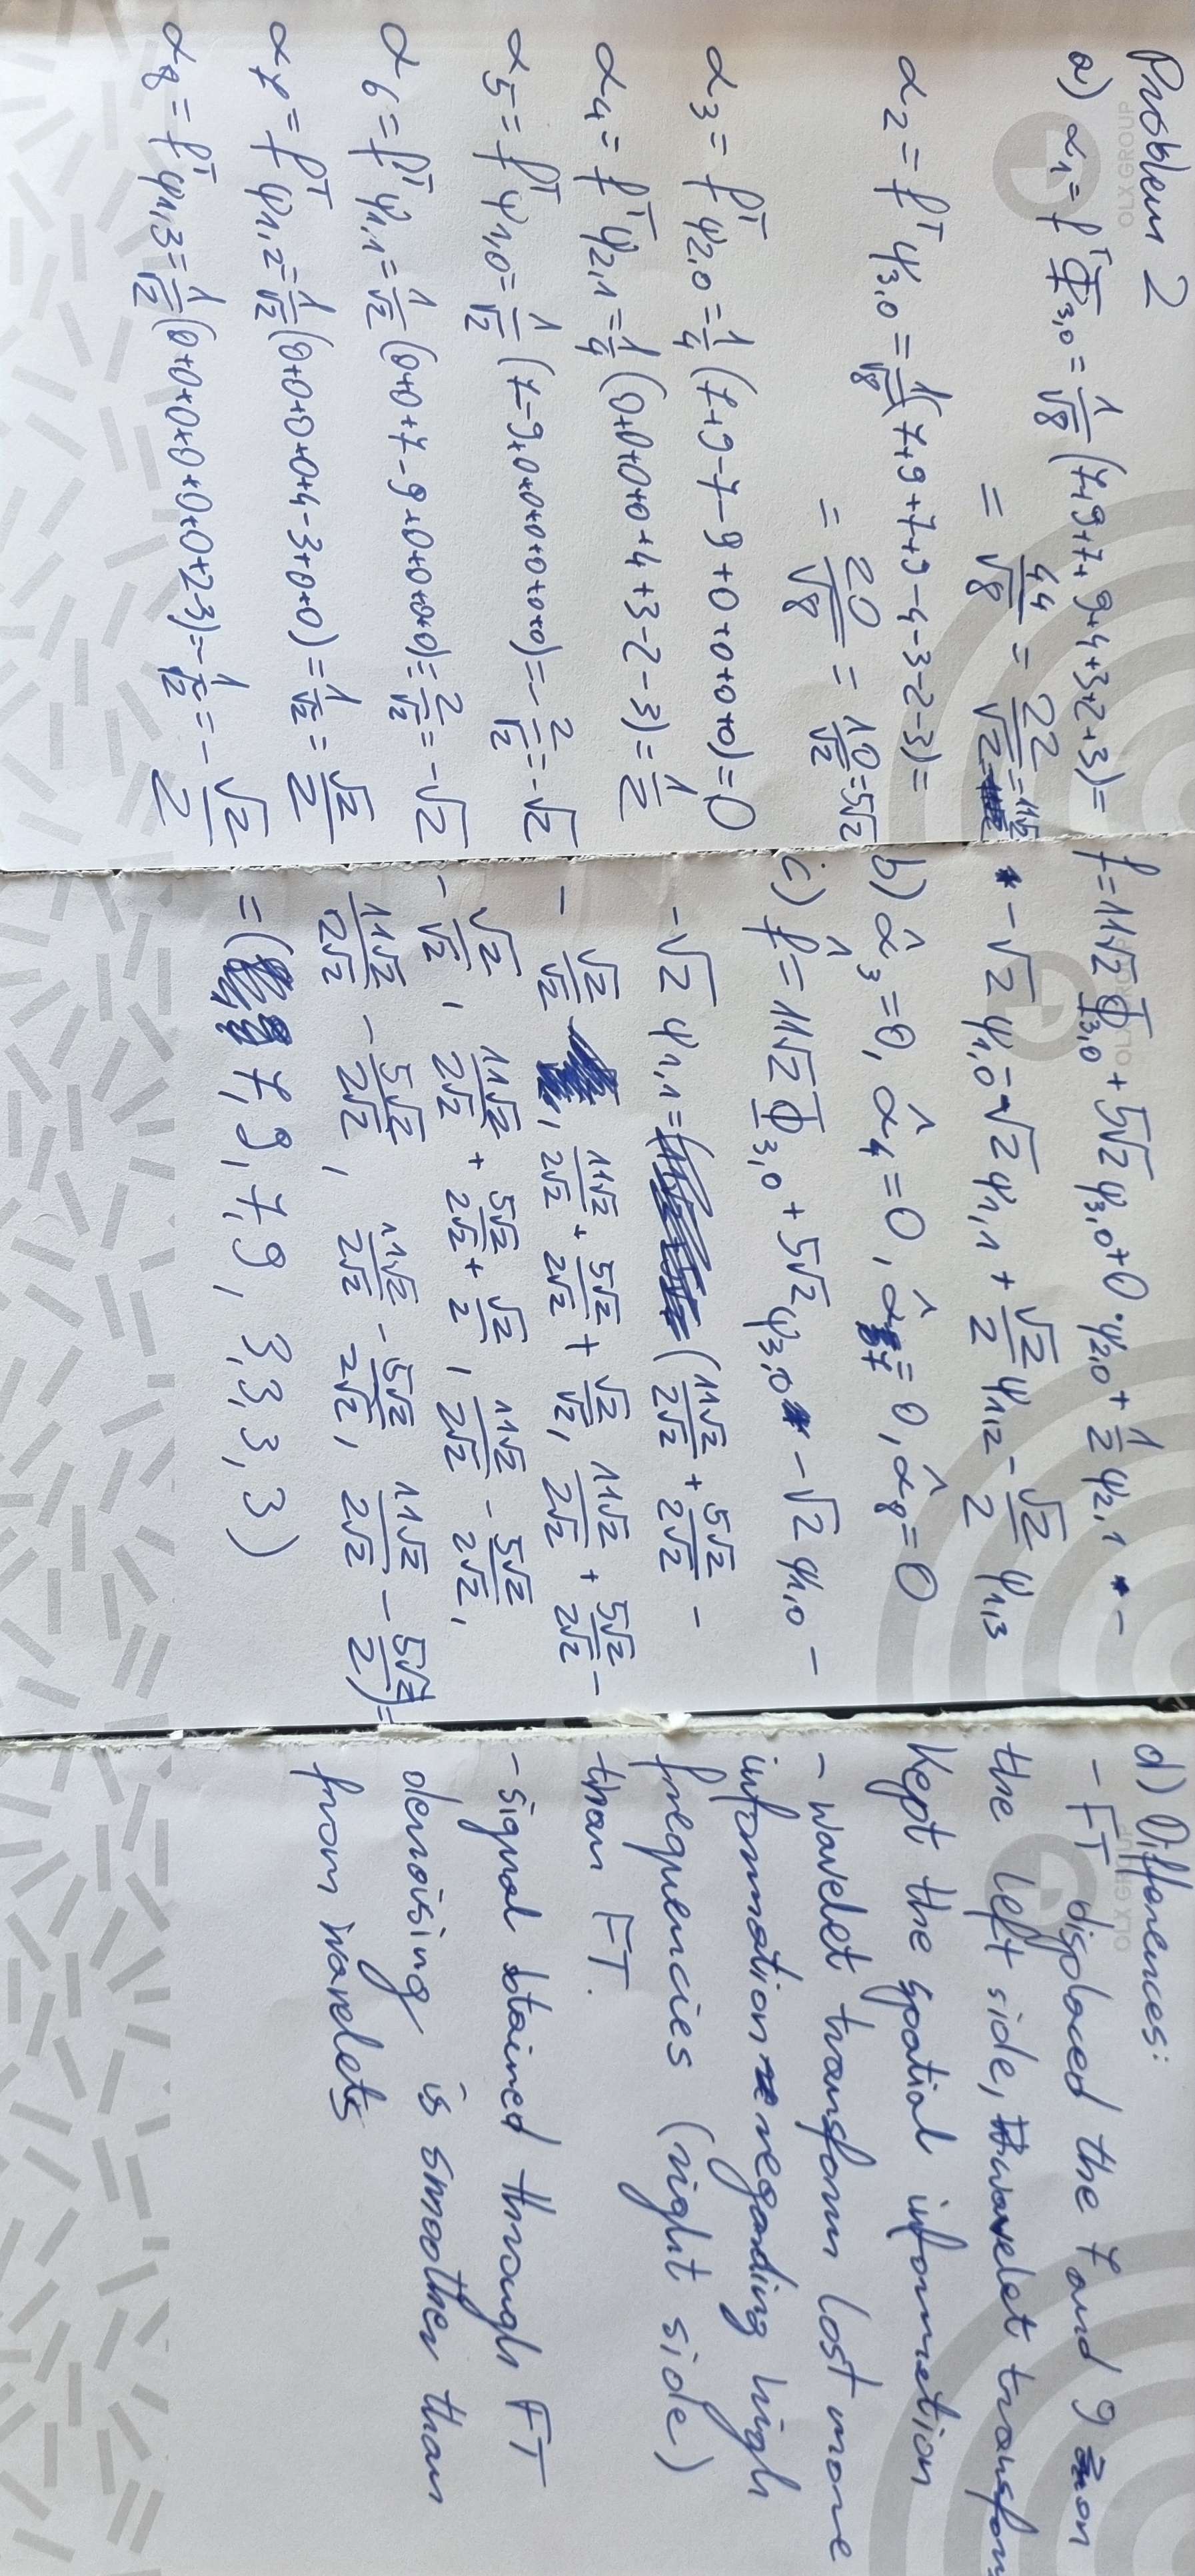 Problem 2
a) α₁ = fᵀ Φ₃,₀ = 1/√8 (7+9+7+9+4+3+2+3) =
= 44/√8 = 22/√2 = 11√2
α₂ = fᵀ ψ₃,₀ = 1/√8 (7+9+7+9-4-3-2-3) =
= 20/√8 = 10/√2 = 5√2
α₃ = fᵀ ψ₂,₀ = 1/4 (7+9-7-9+0+0+0+0) = 0
α₄ = fᵀ ψ₂,₁ = 1/4 (0+0+0+0+4+3-2-3) = 1/2
α₅ = fᵀ ψ₁,₀ = 1/√2 (7-9+0+0+0+0+0+0) = -2/√2 = -√2
α₆ = fᵀ ψ₁,₁ = 1/√2 (0+0+7-9+0+0+0+0) = 2/√2 = -√2
α₇ = fᵀ ψ₁,₂ = 1/√2 (0+0+0+0+4-3+0+0) = 1/√2 = √2/2
α₈ = fᵀ ψ₁,₃ = 1/√2 (0+0+0+0+0+0+2-3) = -1/√2 = -√2/2
f = 11√2 Φ₃,₀ + 5√2 ψ₃,₀ + 0·ψ₂,₀ + 1/2 ψ₂,₁ -
-√2 ψ₁,₀ - √2 ψ₁,₁ + √2/2 ψ₁,₂ - √2/2 ψ₁,₃
b) α̂₃ = 0, α̂₄ = 0, α̂₇ = 0, α̂₈ = 0
c) f̂ = 11√2 Φ₃,₀ + 5√2 ψ₃,₀ - √2 ψ₁,₀ -
-√2 ψ₁,₁ = (11√2/2√2 + 5√2/2√2 -
- √2/√2, 11√2/2√2 + 5√2/2√2 + √2/√2, 11√2/2√2 + 5√2/2√2 -
- √2/√2, 11√2/2√2 + 5√2/2√2 + √2/2, 11√2/2√2 - 5√2/2√2,
11√2/2√2 - 5√2/2√2, 11√2/2√2 - 5√2/2√2, 11√2/2√2 - 5√2/2) =
= (7, 9, 7, 9, 3, 3, 3, 3)
d) Differences:
- FT displaced the 7 and 9 on
the left side, wavelet transform
kept the spatial information
- wavelet transform lost more
information regarding high
frequencies (right side)
than FT.
- signal obtained through FT
denoising is smoother than
from wavelets
OLX GROUP
OLX GROUP
OLX GROUP